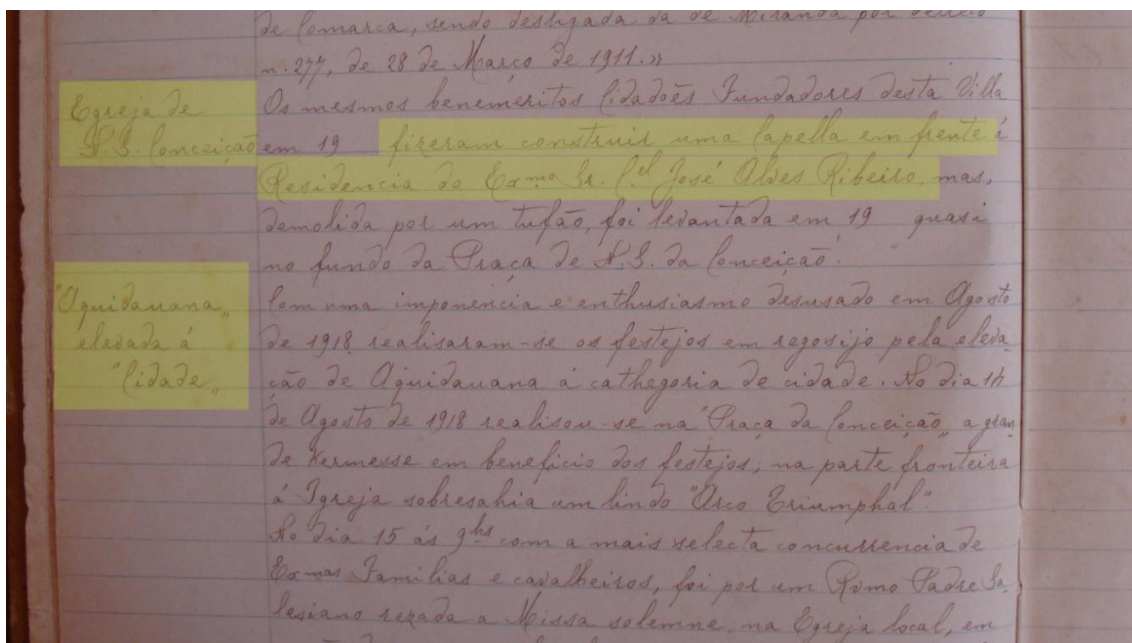 de Comarca, sendo desligada da de Miranda por decreto
n. 277, de 28 de Março de 1911.»
Egreja de
N. S. Conceição
Os mesmos benemeritos Cidadões Fundadores desta Villa
em 19 fizeram construir uma Capella em frente á
Residencia do Exmo Sr. Cel José Alves Ribeiro, mas,
demolida por um tufão, foi levantada em 19 quasi
no fundo da Praça de N. S. da Conceição.
"Aquidauana„
elevada á
"Cidade„
Com uma imponencia e enthusiasmo desusado em Agosto
de 1918 realisaram-se os festejos em regosijo pela eleva-
ção de Aquidauana á cathegoria de cidade. No dia 14
de Agosto de 1918 realisou-se na "Praça da Conceição„ a gran-
de Kermesse em beneficio dos festejos; na parte fronteira
á Igreja sobresahia um lindo "Arco Triumphal".
No dia 15 ás 9hs com a mais selecta concurrencia de
Exmas Familias e cavalheiros, foi por um Rvmo Padre Sa-
lesiano rezada a Missa solemne, na Egreja local, em